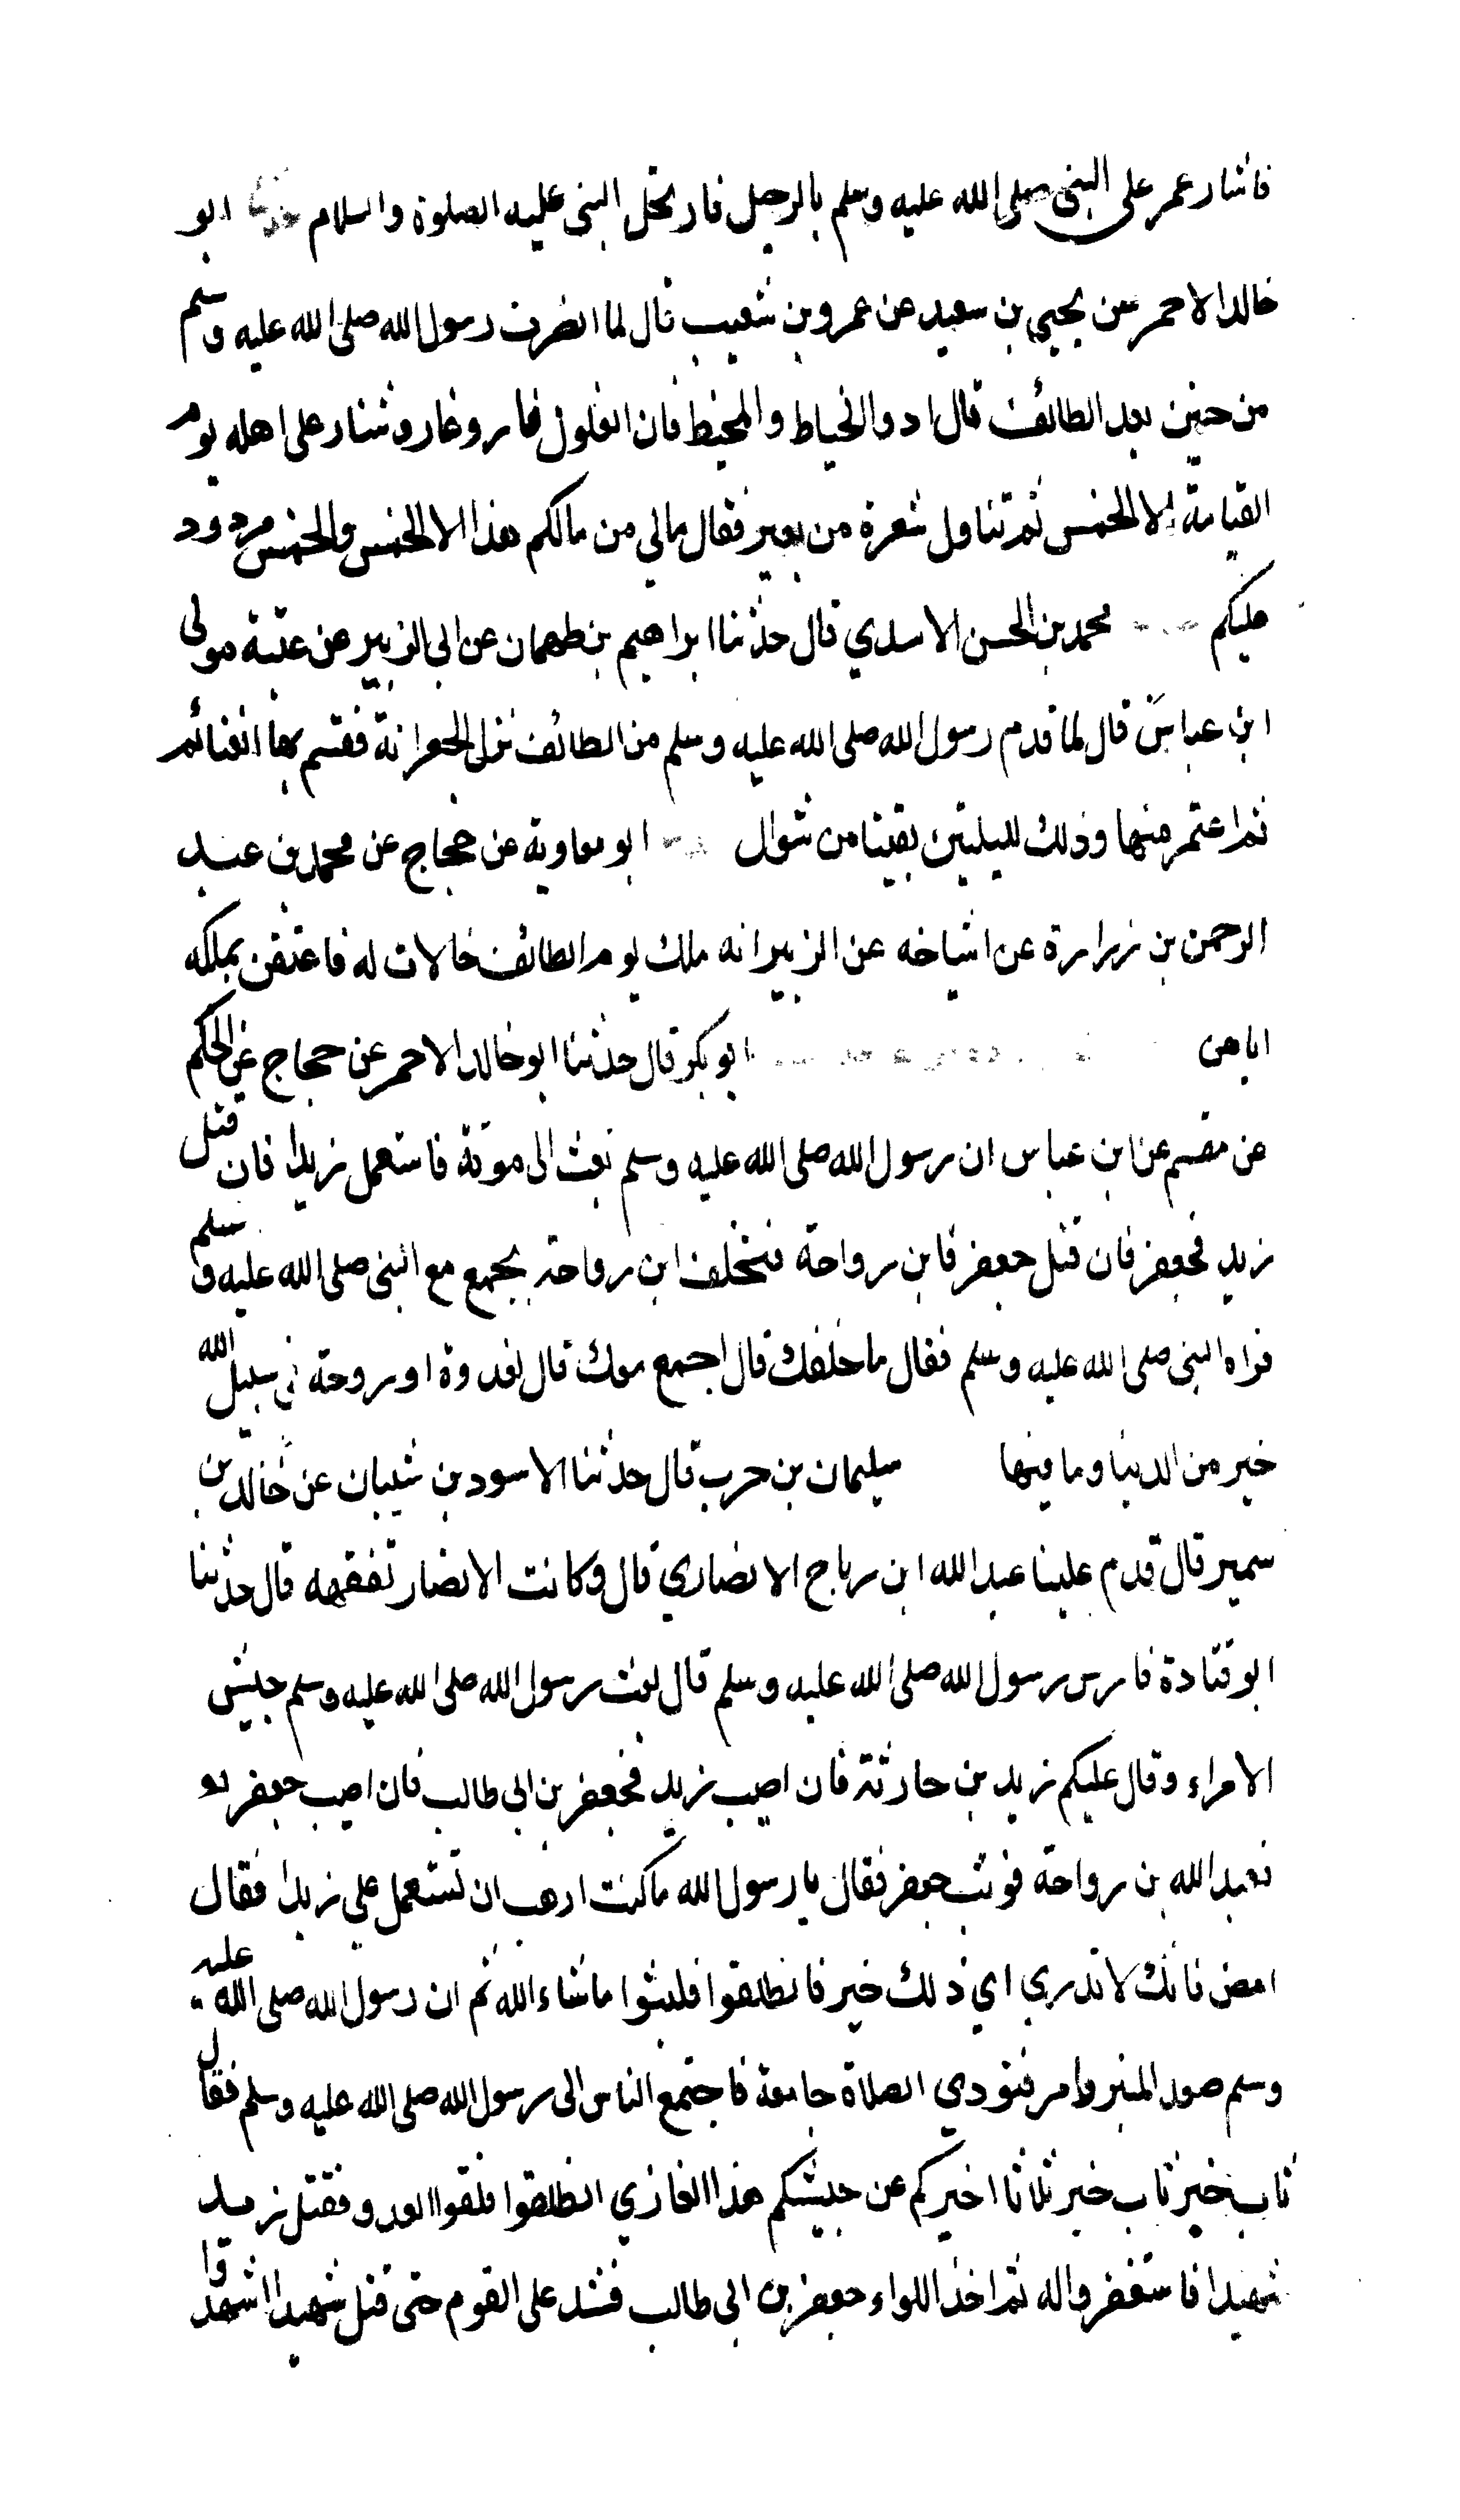 فاشار عمر على النبي صلى الله عليه وسلم بالرحيل فارتحل النبي عليه الصلوة والسلام حدثنا ابو
خالد الاحمر عن يحيى بن سعيد عن عمرو بن شعيب قال لما انصرف رسول الله صلى الله عليه وسلم
من حنين بعد الطائف قال ادوا الخياط والمخيط فان الغلول نار وعار وشنار على اهله يوم
القيامة الا الخمس ثم تناول شعرة من بعير فقال مالي من مالكم هذا الا الخمس والخمس مردود
عليكم محمد بن الحسن الاسدي قال حدثنا ابراهيم بن طهمان عن ابي الزبير عن عتبة مولى
ابن عباس قال لما قدم رسول الله صلى الله عليه وسلم من الطائف نزل الجعرانة فقسم بها الغنائم
ثم اعتمر منها وذلك لليلتين بقيتا من شوال ابو معاوية عن حجاج عن محمد بن عبد
الرحمن بن زرارة عن اشياخه عن الزبير انه ملك يوم الطائف خالات له فاعتقن بملكه
اياهن ابو بكر قال حدثنا ابو خالد الاحمر عن حجاج عن الحكم
عن مقسم عن ابن عباس ان رسول الله صلى الله عليه وسلم بعث الى موتة فاستعمل زيدا فان قتل
زيد فجعفر فان قتل جعفر فابن رواحة فتخلف ابن رواحة يجمع مع النبي صلى الله عليه وسلم
فراه النبي صلى الله عليه وسلم فقال ما خلفك قال اجمع معك قال لغدوة او روحة في سبيل الله
خير من الدنيا وما فيها سليمان بن حرب قال حدثنا الاسود بن شيبان عن خالد بن
سمير قال قدم علينا عبد الله ابن رباح الانصاري قال وكانت الانصار تفقهه قال حدثنا
ابو قتادة فارس رسول الله صلى الله عليه وسلم قال بعث رسول الله صلى الله عليه وسلم جيش
الامراء وقال عليكم زيد بن حارثة فان اصيب زيد فجعفر بن ابي طالب فان اصيب جعفر
فعبد الله بن رواحة فوثب جعفر فقال يا رسول الله ما كنت ارهب ان تستعمل علي زيدا فقال
امض فانك لا تدري اي ذلك خير فانطلقوا فلبثوا ما شاء الله ثم ان رسول الله صلى الله عليه
وسلم صعد المنبر وامر فنودي الصلاة جامعة فاجتمع الناس الى رسول الله صلى الله عليه وسلم فقال
ثاب خير ثاب خير ثلاثا اخبركم عن جيشكم هذا الغازي انطلقوا فلقوا العدو فقتل زيد
شهيدا فاستغفروا له ثم اخذ اللواء جعفر بن ابي طالب فشد على القوم حتى قتل شهيدا اشهدوا